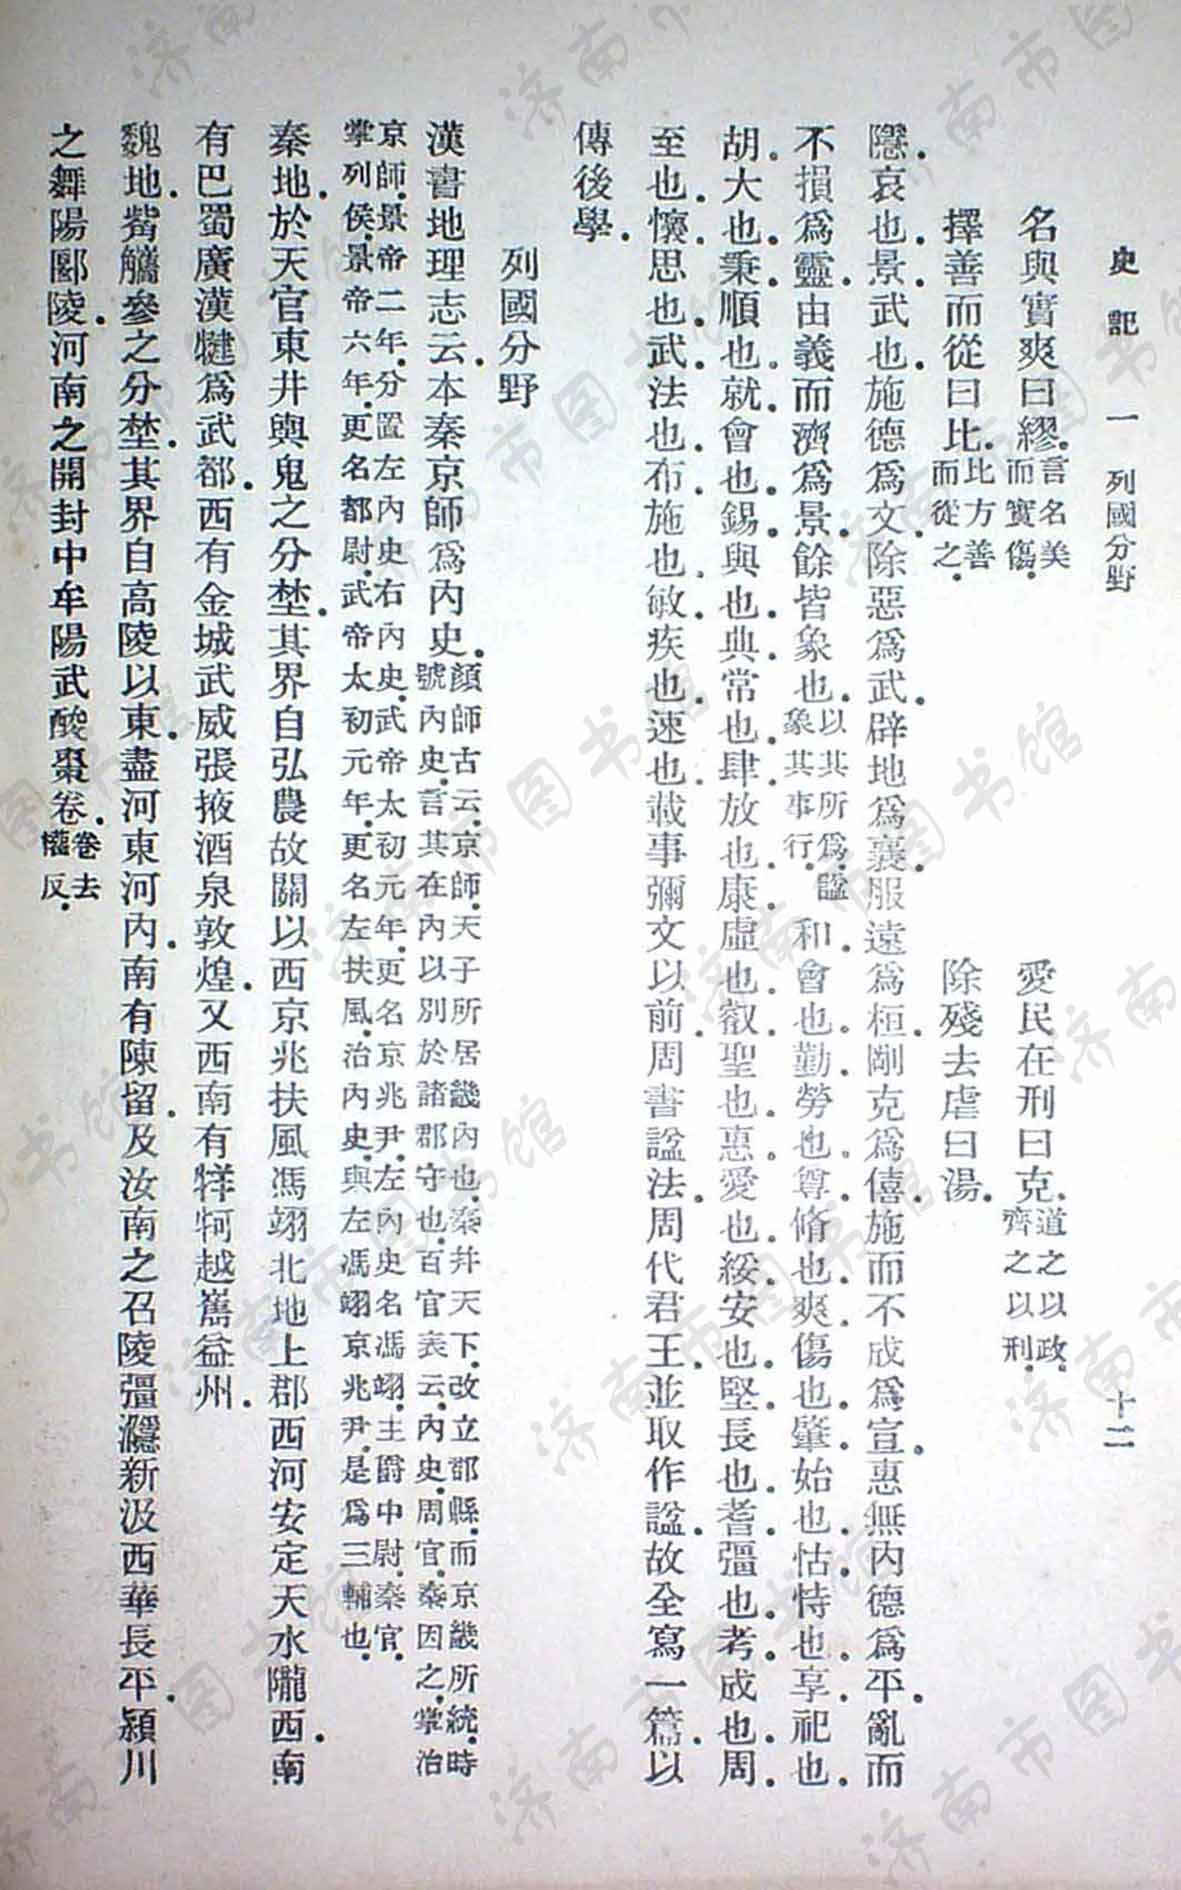 史記一 列國分野 十二
名與實爽曰繆.言名美而實傷. 愛民在刑曰克.道之以政.齊之以刑.
擇善而從曰比.比方善而從之. 除殘去虐曰湯.
隱.哀也.景.武也.施德爲文.除惡爲武.辟地爲襄.服遠爲桓.剛克爲僖.施而不成爲宣.惠無內德爲平.亂而
不損爲靈.由義而濟爲景.餘皆象也.以其所爲.諡象其事行.和.會也.勤.勞也.尊.脩也.爽.傷也.肇.始也.怙.恃也.享.祀也.
胡.大也.秉.順也.就.會也.錫.與也.典.常也.肆.放也.康.虛也.叡.聖也.惠.愛也.綏.安也.堅.長也.耆.彊也.考.成也.周.
至也.懷.思也.武.法也.布.施也.敏.疾也.速也.載事彌文以前.周書諡法.周代君王.並取作諡.故全寫一篇.以
傳後學.
列國分野
漢書地理志云.本秦京師爲內史.顏師古云.京師.天子所居畿內也.秦并天下.改立郡縣.而京畿所統.時號內史.言其在內以別於諸郡守也.百官表云.內史.周官.秦因之.掌治
京師.景帝二年.分置左內史右內史.武帝太初元年.更名京兆尹.左內史名馮翊.主爵中尉.秦官.掌列侯.景帝六年.更名都尉.武帝太初元年.更名左扶風.治內史.與左馮翊京兆尹.是爲三輔也.
秦地.於天官東井輿鬼之分埜.其界自弘農故關以西京兆扶風馮翊北地上郡西河安定天水隴西.南
有巴蜀廣漢犍爲武都.西有金城武威張掖酒泉敦煌.又西南有牂牁越嶲益州.
魏地.觜觿參之分埜.其界自高陵以東.盡河東河內.南有陳留.及汝南之召陵彊㶏新汲西華長平.潁川
之舞陽郾陵.河南之開封中牟陽武酸棗卷.卷去權反.